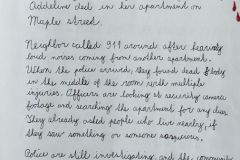 Addeline died in her apartment on
Maple street.
Neighbor called 911 around after hearing
loud noises coming from another apartment.
When the police arrived, they found dead body
in the middle of the room with multiple
injuries. Officers are looking at security camera
footage and searching the apartment for any clues.
They already asked people who live nearby, if
they saw something or someone suspicious.
Police are still investigating, and the community